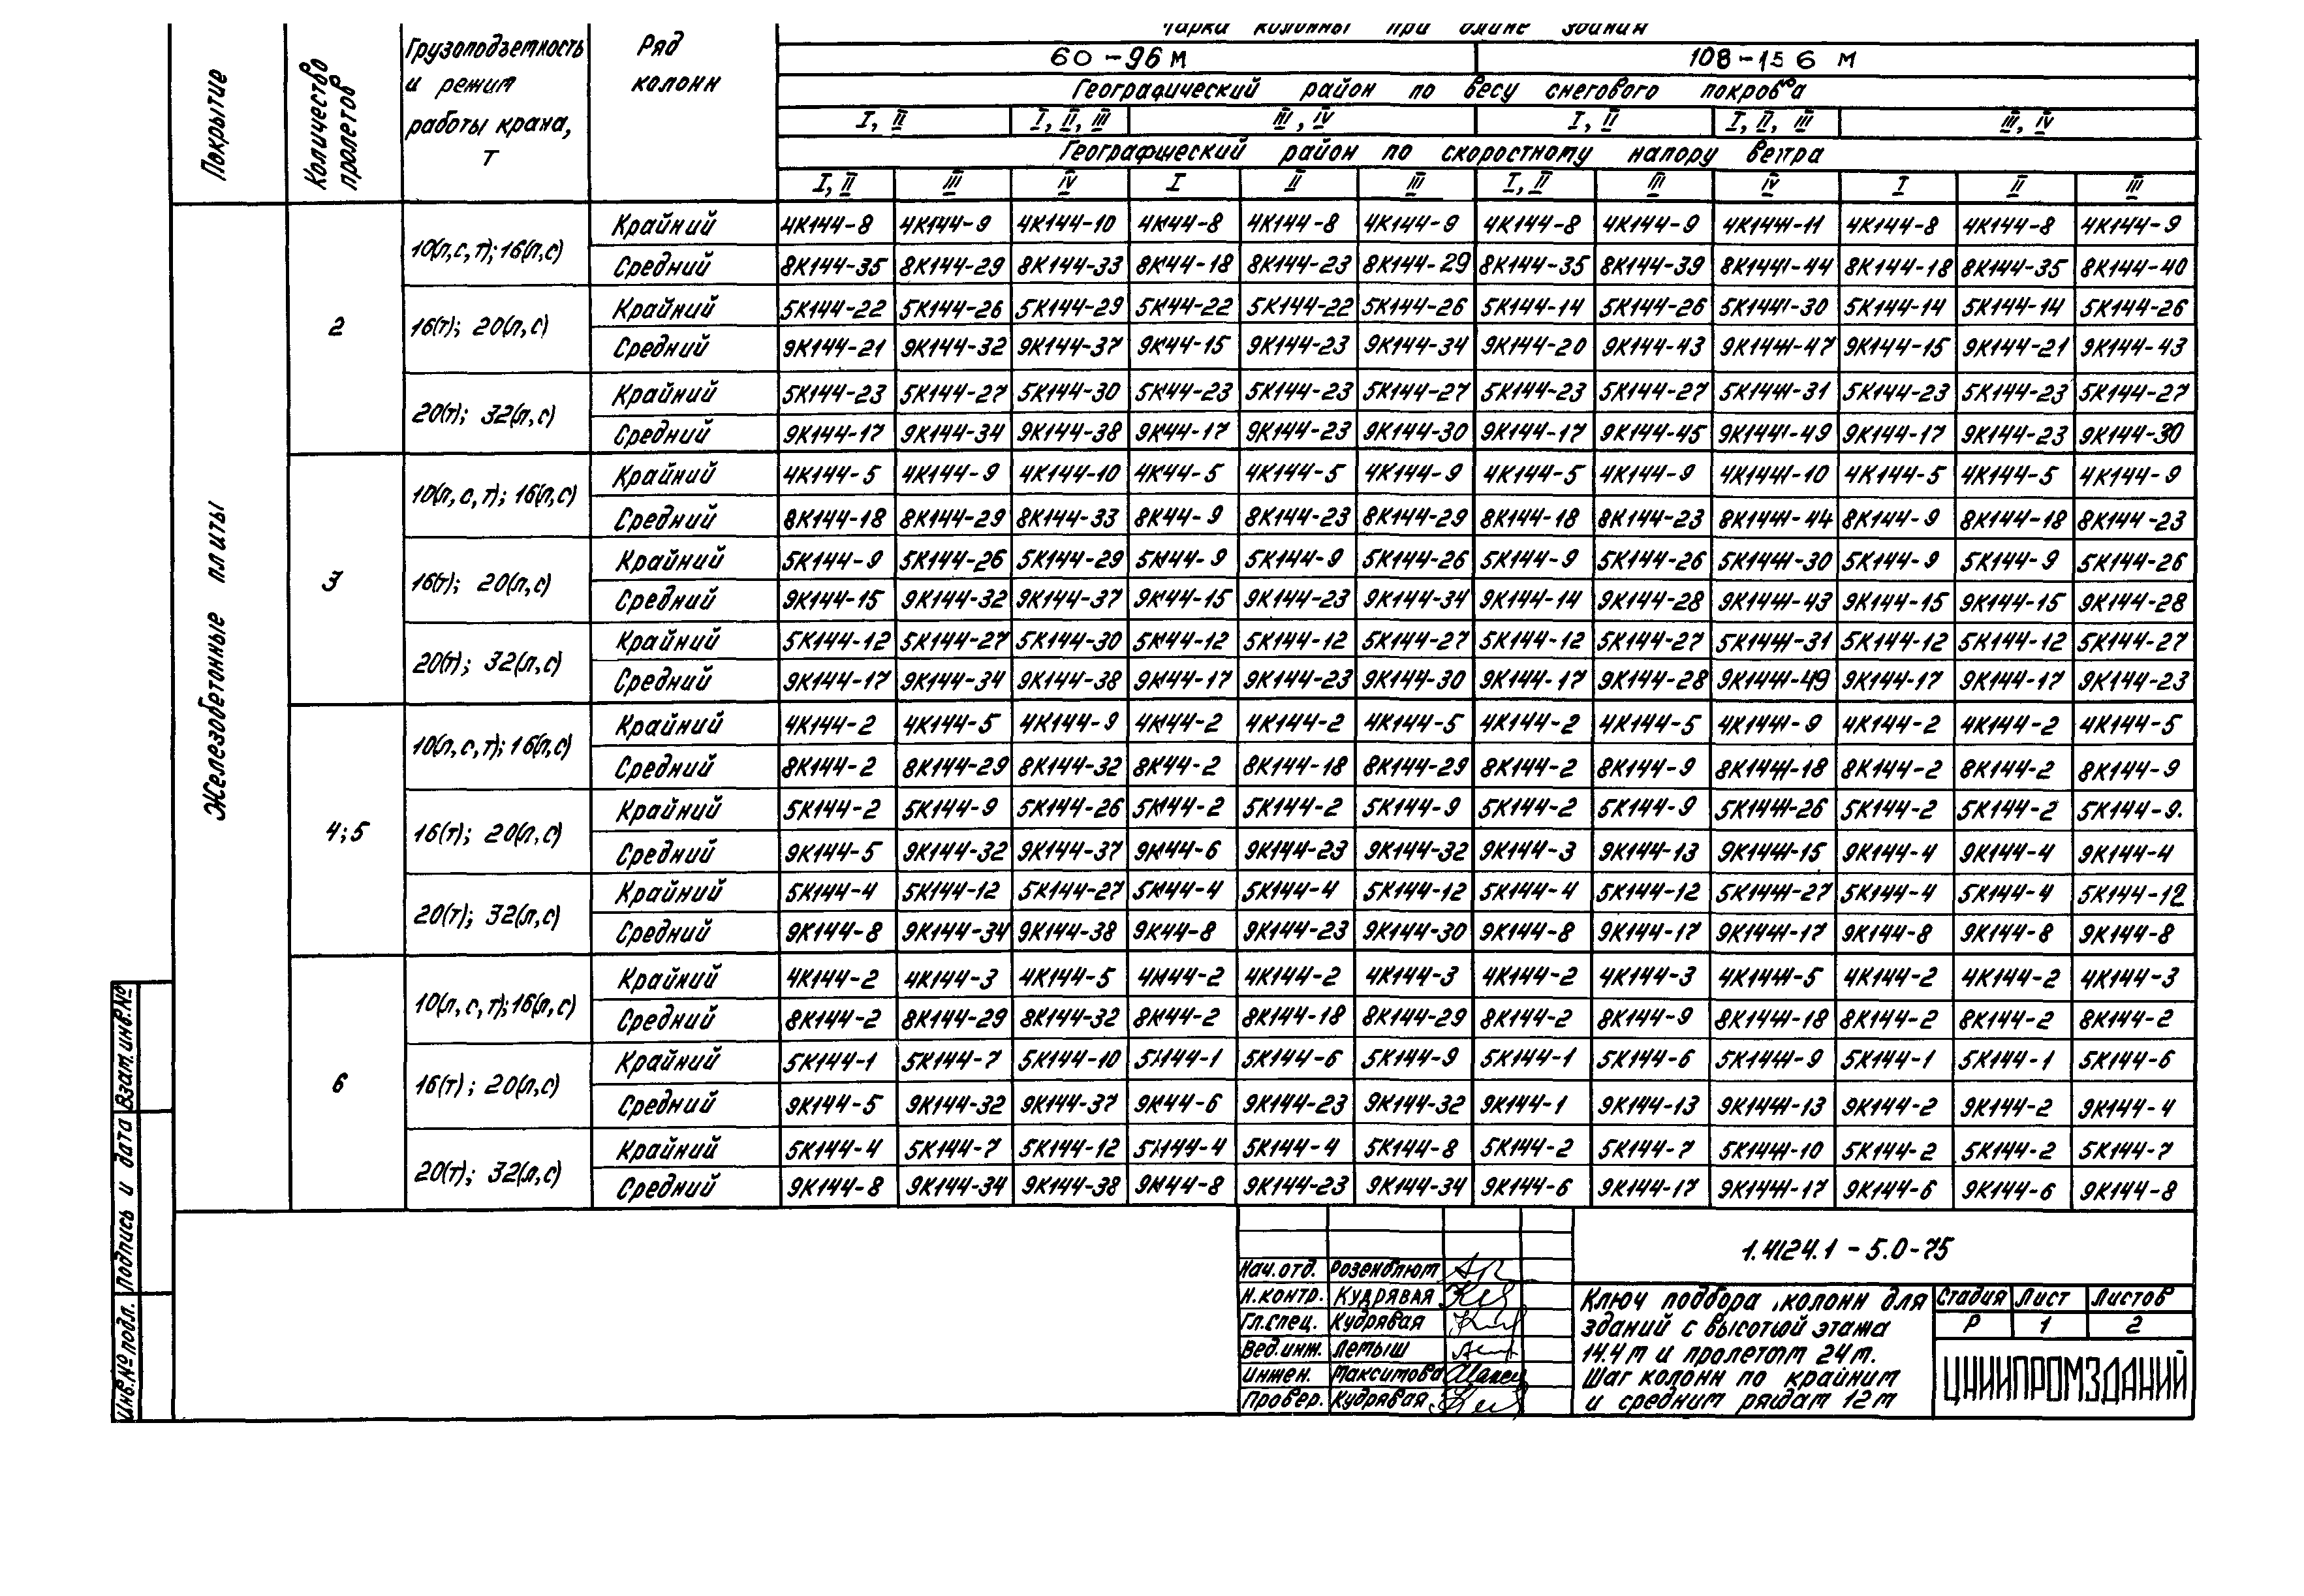 Марка колонны при длине здания
Покрытие | Количество пролетов | Грузоподъемность и режим работы крана, т | Ряд колонн | 60-96 м | 108-156 м
Географический район по весу снегового покрова
I, II | I, II, III | III, IV | I, II | I, II, III | III, IV
Географический район по скоростному напору ветра
I, II | III | IV | I | II | III | I, II | III | IV | I | II | III
Железобетонные плиты
2
10(л,с,т); 16(л,с)
Крайний | 4К144-8 | 4К144-9 | 4К144-10 | 4К144-8 | 4К144-8 | 4К144-9 | 4К144-8 | 4К144-9 | 4К144-11 | 4К144-8 | 4К144-8 | 4К144-9
Средний | 8К144-35 | 8К144-29 | 8К144-33 | 8К144-18 | 8К144-23 | 8К144-29 | 8К144-35 | 8К144-39 | 8К144-44 | 8К144-18 | 8К144-35 | 8К144-40
16(т); 20(л,с)
Крайний | 5К144-22 | 5К144-26 | 5К144-29 | 5К144-22 | 5К144-22 | 5К144-26 | 5К144-14 | 5К144-26 | 5К144-30 | 5К144-14 | 5К144-14 | 5К144-26
Средний | 9К144-21 | 9К144-32 | 9К144-37 | 9К144-15 | 9К144-23 | 9К144-34 | 9К144-20 | 9К144-43 | 9К144-47 | 9К144-15 | 9К144-21 | 9К144-43
20(т); 32(л,с)
Крайний | 5К144-23 | 5К144-27 | 5К144-30 | 5К144-23 | 5К144-23 | 5К144-27 | 5К144-23 | 5К144-27 | 5К144-31 | 5К144-23 | 5К144-23 | 5К144-27
Средний | 9К144-17 | 9К144-34 | 9К144-38 | 9К144-17 | 9К144-23 | 9К144-30 | 9К144-17 | 9К144-45 | 9К144-49 | 9К144-17 | 9К144-23 | 9К144-30
3
10(л,с,т); 16(л,с)
Крайний | 4К144-5 | 4К144-9 | 4К144-10 | 4К144-5 | 4К144-5 | 4К144-9 | 4К144-5 | 4К144-9 | 4К144-10 | 4К144-5 | 4К144-5 | 4К144-9
Средний | 8К144-18 | 8К144-29 | 8К144-33 | 8К144-9 | 8К144-23 | 8К144-29 | 8К144-18 | 8К144-23 | 8К144-44 | 8К144-9 | 8К144-18 | 8К144-23
16(т); 20(л,с)
Крайний | 5К144-9 | 5К144-26 | 5К144-29 | 5К144-9 | 5К144-9 | 5К144-26 | 5К144-9 | 5К144-26 | 5К144-30 | 5К144-9 | 5К144-9 | 5К144-26
Средний | 9К144-15 | 9К144-32 | 9К144-37 | 9К144-15 | 9К144-23 | 9К144-34 | 9К144-14 | 9К144-28 | 9К144-43 | 9К144-15 | 9К144-15 | 9К144-28
20(т); 32(л,с)
Крайний | 5К144-12 | 5К144-27 | 5К144-30 | 5К144-12 | 5К144-12 | 5К144-27 | 5К144-12 | 5К144-27 | 5К144-31 | 5К144-12 | 5К144-12 | 5К144-27
Средний | 9К144-17 | 9К144-34 | 9К144-38 | 9К144-17 | 9К144-23 | 9К144-30 | 9К144-17 | 9К144-28 | 9К144-49 | 9К144-17 | 9К144-17 | 9К144-23
4; 5
10(л,с,т); 16(л,с)
Крайний | 4К144-2 | 4К144-5 | 4К144-9 | 4К144-2 | 4К144-2 | 4К144-5 | 4К144-2 | 4К144-5 | 4К144-9 | 4К144-2 | 4К144-2 | 4К144-5
Средний | 8К144-2 | 8К144-29 | 8К144-32 | 8К144-2 | 8К144-18 | 8К144-29 | 8К144-2 | 8К144-9 | 8К144-18 | 8К144-2 | 8К144-2 | 8К144-9
16(т); 20(л,с)
Крайний | 5К144-2 | 5К144-9 | 5К144-26 | 5К144-2 | 5К144-2 | 5К144-9 | 5К144-2 | 5К144-9 | 5К144-26 | 5К144-2 | 5К144-2 | 5К144-9.
Средний | 9К144-5 | 9К144-32 | 9К144-37 | 9К144-6 | 9К144-23 | 9К144-32 | 9К144-3 | 9К144-13 | 9К144-15 | 9К144-4 | 9К144-4 | 9К144-4
20(т); 32(л,с)
Крайний | 5К144-4 | 5К144-12 | 5К144-27 | 5К144-4 | 5К144-4 | 5К144-12 | 5К144-4 | 5К144-12 | 5К144-27 | 5К144-4 | 5К144-4 | 5К144-12
Средний | 9К144-8 | 9К144-34 | 9К144-38 | 9К144-8 | 9К144-23 | 9К144-30 | 9К144-8 | 9К144-17 | 9К144-17 | 9К144-8 | 9К144-8 | 9К144-8
6
10(л,с,т); 16(л,с)
Крайний | 4К144-2 | 4К144-3 | 4К144-5 | 4К144-2 | 4К144-2 | 4К144-3 | 4К144-2 | 4К144-3 | 4К144-5 | 4К144-2 | 4К144-2 | 4К144-3
Средний | 8К144-2 | 8К144-29 | 8К144-32 | 8К144-2 | 8К144-18 | 8К144-29 | 8К144-2 | 8К144-9 | 8К144-18 | 8К144-2 | 8К144-2 | 8К144-2
16(т); 20(л,с)
Крайний | 5К144-1 | 5К144-7 | 5К144-10 | 5К144-1 | 5К144-6 | 5К144-9 | 5К144-1 | 5К144-6 | 5К144-9 | 5К144-1 | 5К144-1 | 5К144-6
Средний | 9К144-5 | 9К144-32 | 9К144-37 | 9К144-6 | 9К144-23 | 9К144-32 | 9К144-1 | 9К144-13 | 9К144-13 | 9К144-2 | 9К144-2 | 9К144-4
20(т); 32(л,с)
Крайний | 5К144-4 | 5К144-7 | 5К144-12 | 5К144-4 | 5К144-4 | 5К144-8 | 5К144-2 | 5К144-7 | 5К144-10 | 5К144-2 | 5К144-2 | 5К144-7
Средний | 9К144-8 | 9К144-34 | 9К144-38 | 9К144-8 | 9К144-23 | 9К144-34 | 9К144-6 | 9К144-17 | 9К144-17 | 9К144-6 | 9К144-6 | 9К144-8
Инв.№ подл. | Подпись и дата | Взам.инв.№
1.4124.1-5.0-75
Нач.отд. Розенблюм
Н.контр. Кудрявая
Гл.спец. Кудрявая
Вед.инж. Лемыш
Инжен. Максимова
Провер. Кудрявая
Ключ подбора колонн для
зданий с высотой этажа
14.4 м и пролетом 24 м.
Шаг колонн по крайним
и средним рядам 12 м
Стадия | Лист | Листов
Р | 1 | 2
ЦНИИПРОМЗДАНИЙ